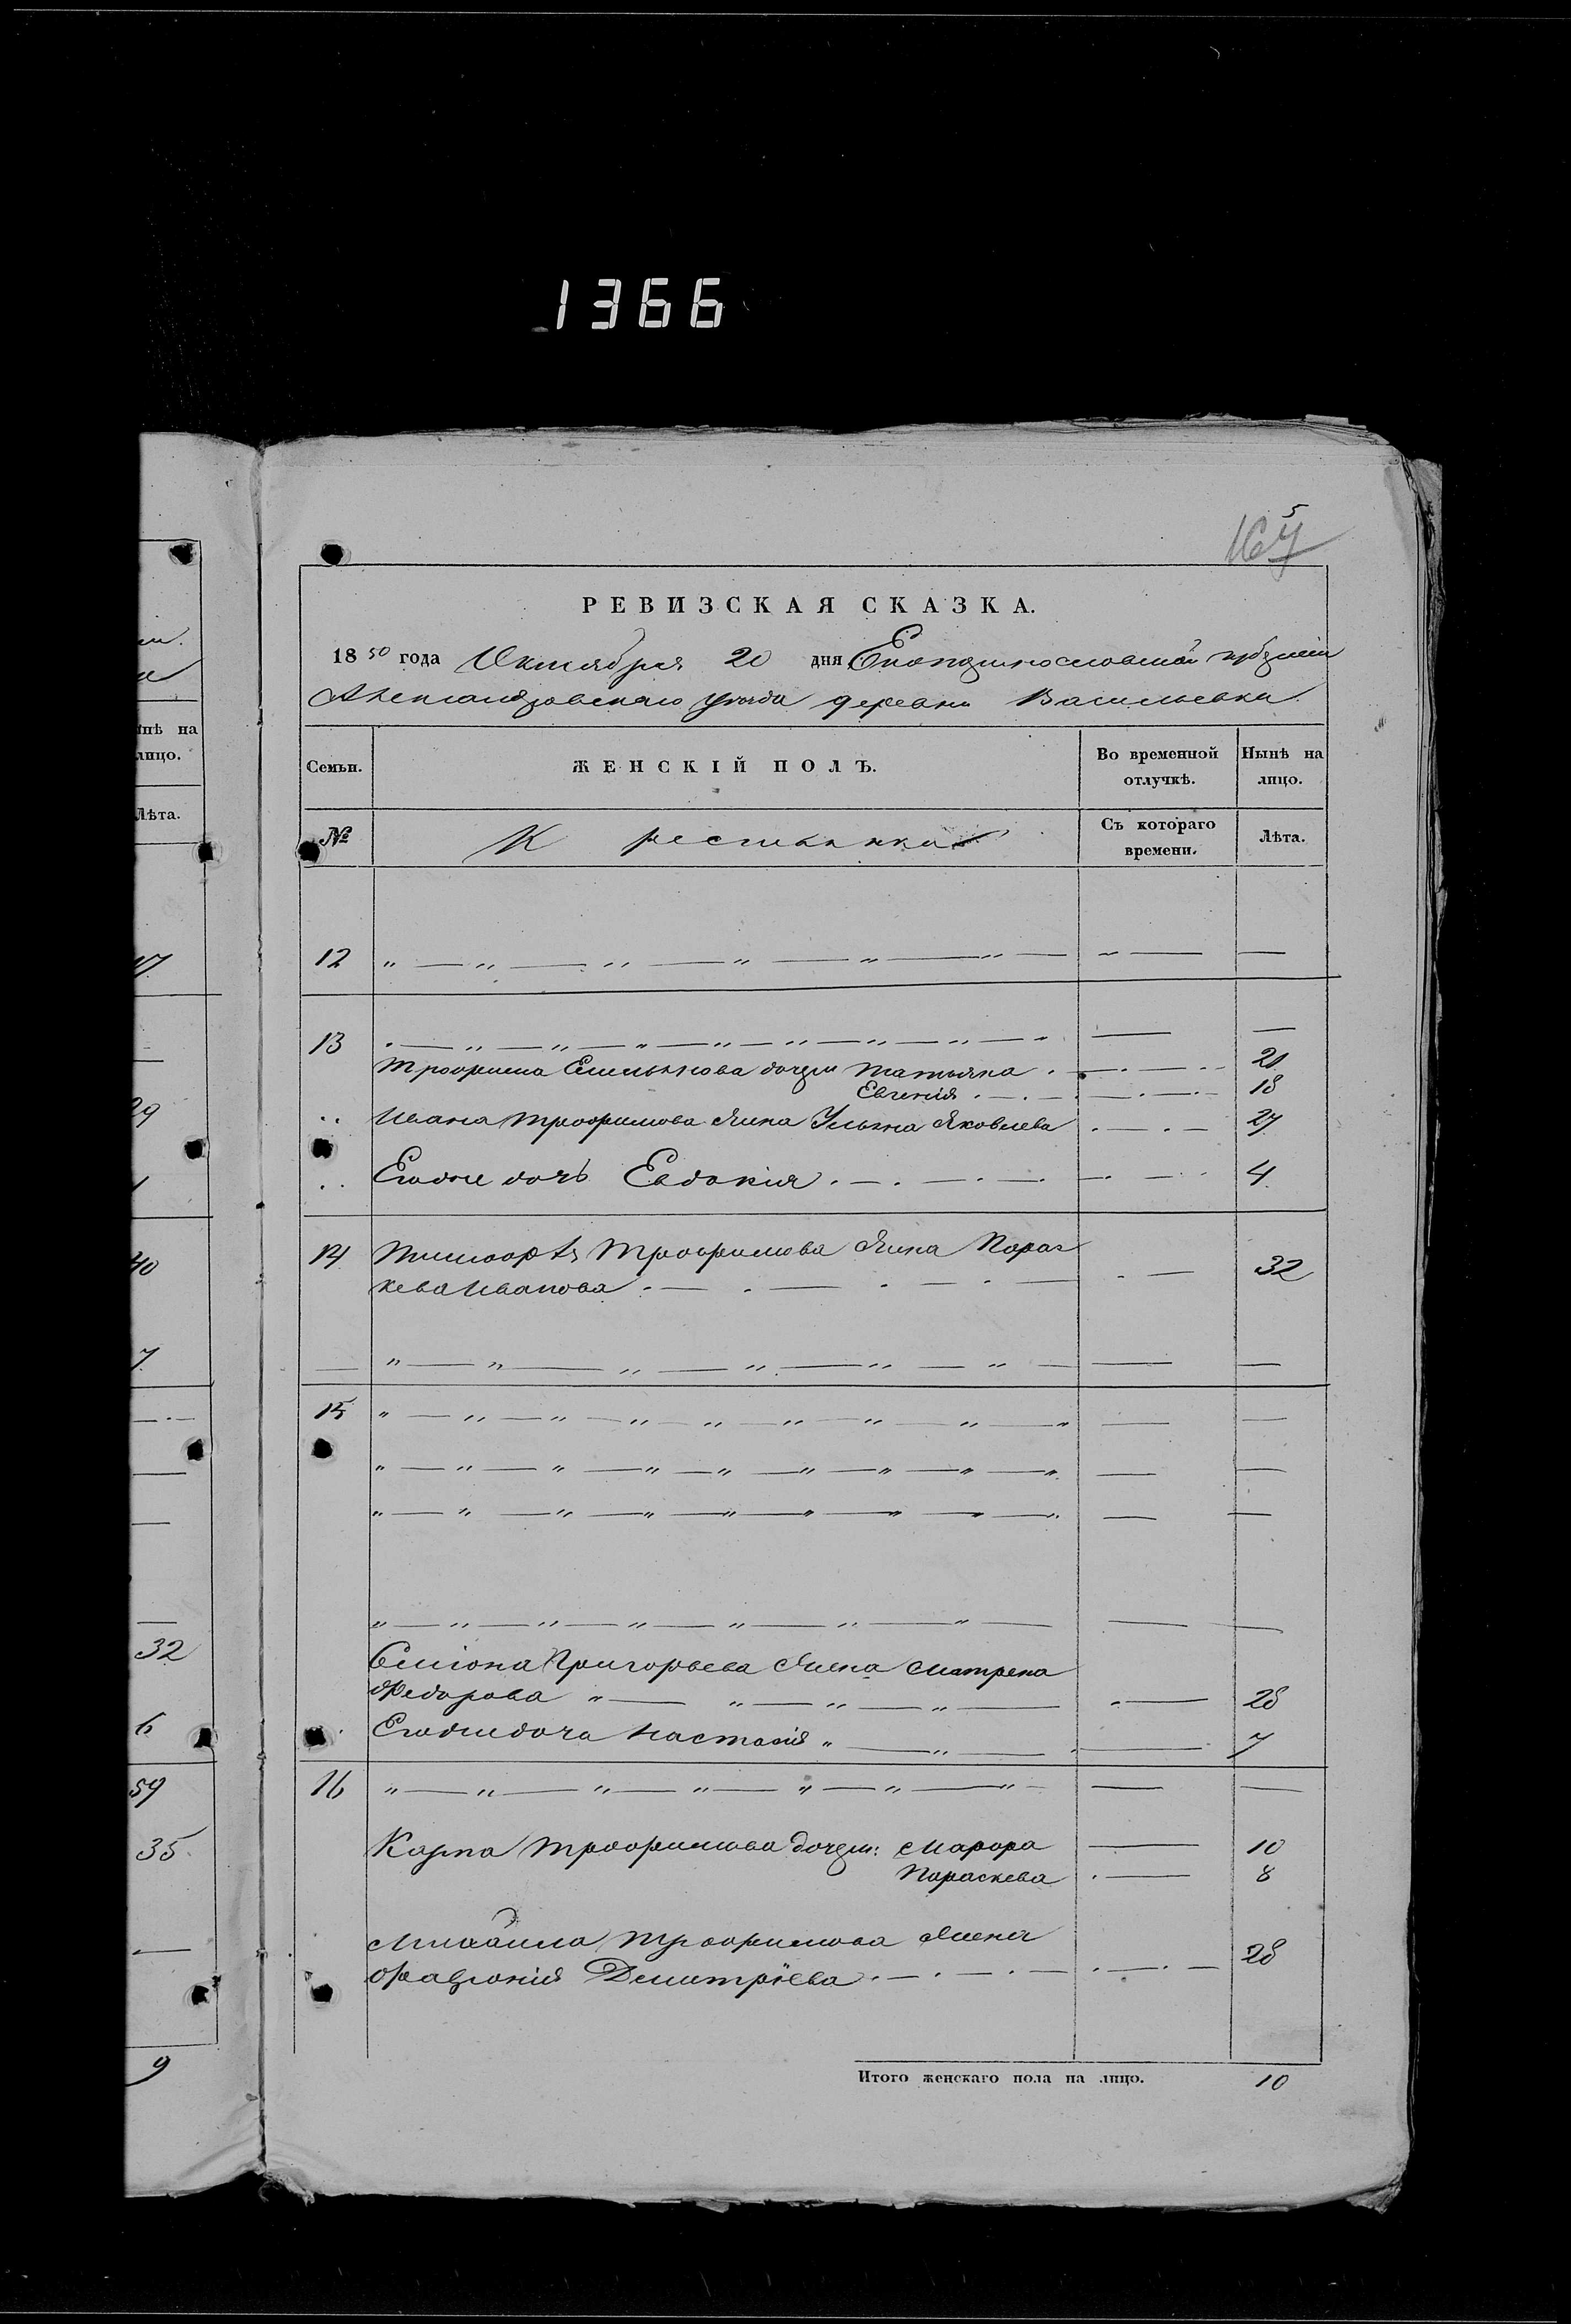 1366
5
164
РЕВИЗСКАЯ СКАЗКА.
1850 года Октября 20 дня Екатеринославской губерніи
Александровскаго уѣзда деревни Васильевки
Семьи. ЖЕНСКІЙ ПОЛЪ. Во временной отлучкѣ. Нынѣ на лицо.
№ Крестьянка Съ котораго времени. Лѣта.
12 „ — „ — „ — „ — „ — „ — — —
13 „ — „ — „ — „ — „ — „ — „ — „ — „ — —
Трофима Емельянова дочери Татьяна 20
Евгенія 18
Ивана Трофимова жена Ульяна Яковлева 27
Егоже дочь Евдокія 4
14 Тимофѣя Трофимова жена Парас
кева Иванова 32
„ — „ — „ — „ — „ — „ — — —
15 „ — „ — „ — „ — „ — „ — „ — „ — „ — —
„ — „ — „ — „ — „ — „ — „ — „ — „ — —
„ — „ — „ — „ — „ — „ — „ — „ — „ — —
„ — „ — „ — „ — „ — „ — „ — — —
Симіона Григорьева жена Матрена
Федорова „ — „ — „ — „ — 28
Егоже доча Настасія „ — „ — 7
16 „ — „ — „ — „ — „ — „ — „ — — —
Карпа Трофимова дочери: Марфа 10
Параскева 8
Михайла Трофимова жена
Февронія Дмитріева 28
Итого женскаго пола на лицо. 10
нѣ на
лицо.
Лѣта.
17
29
1
40
7
32
6
59
35
9